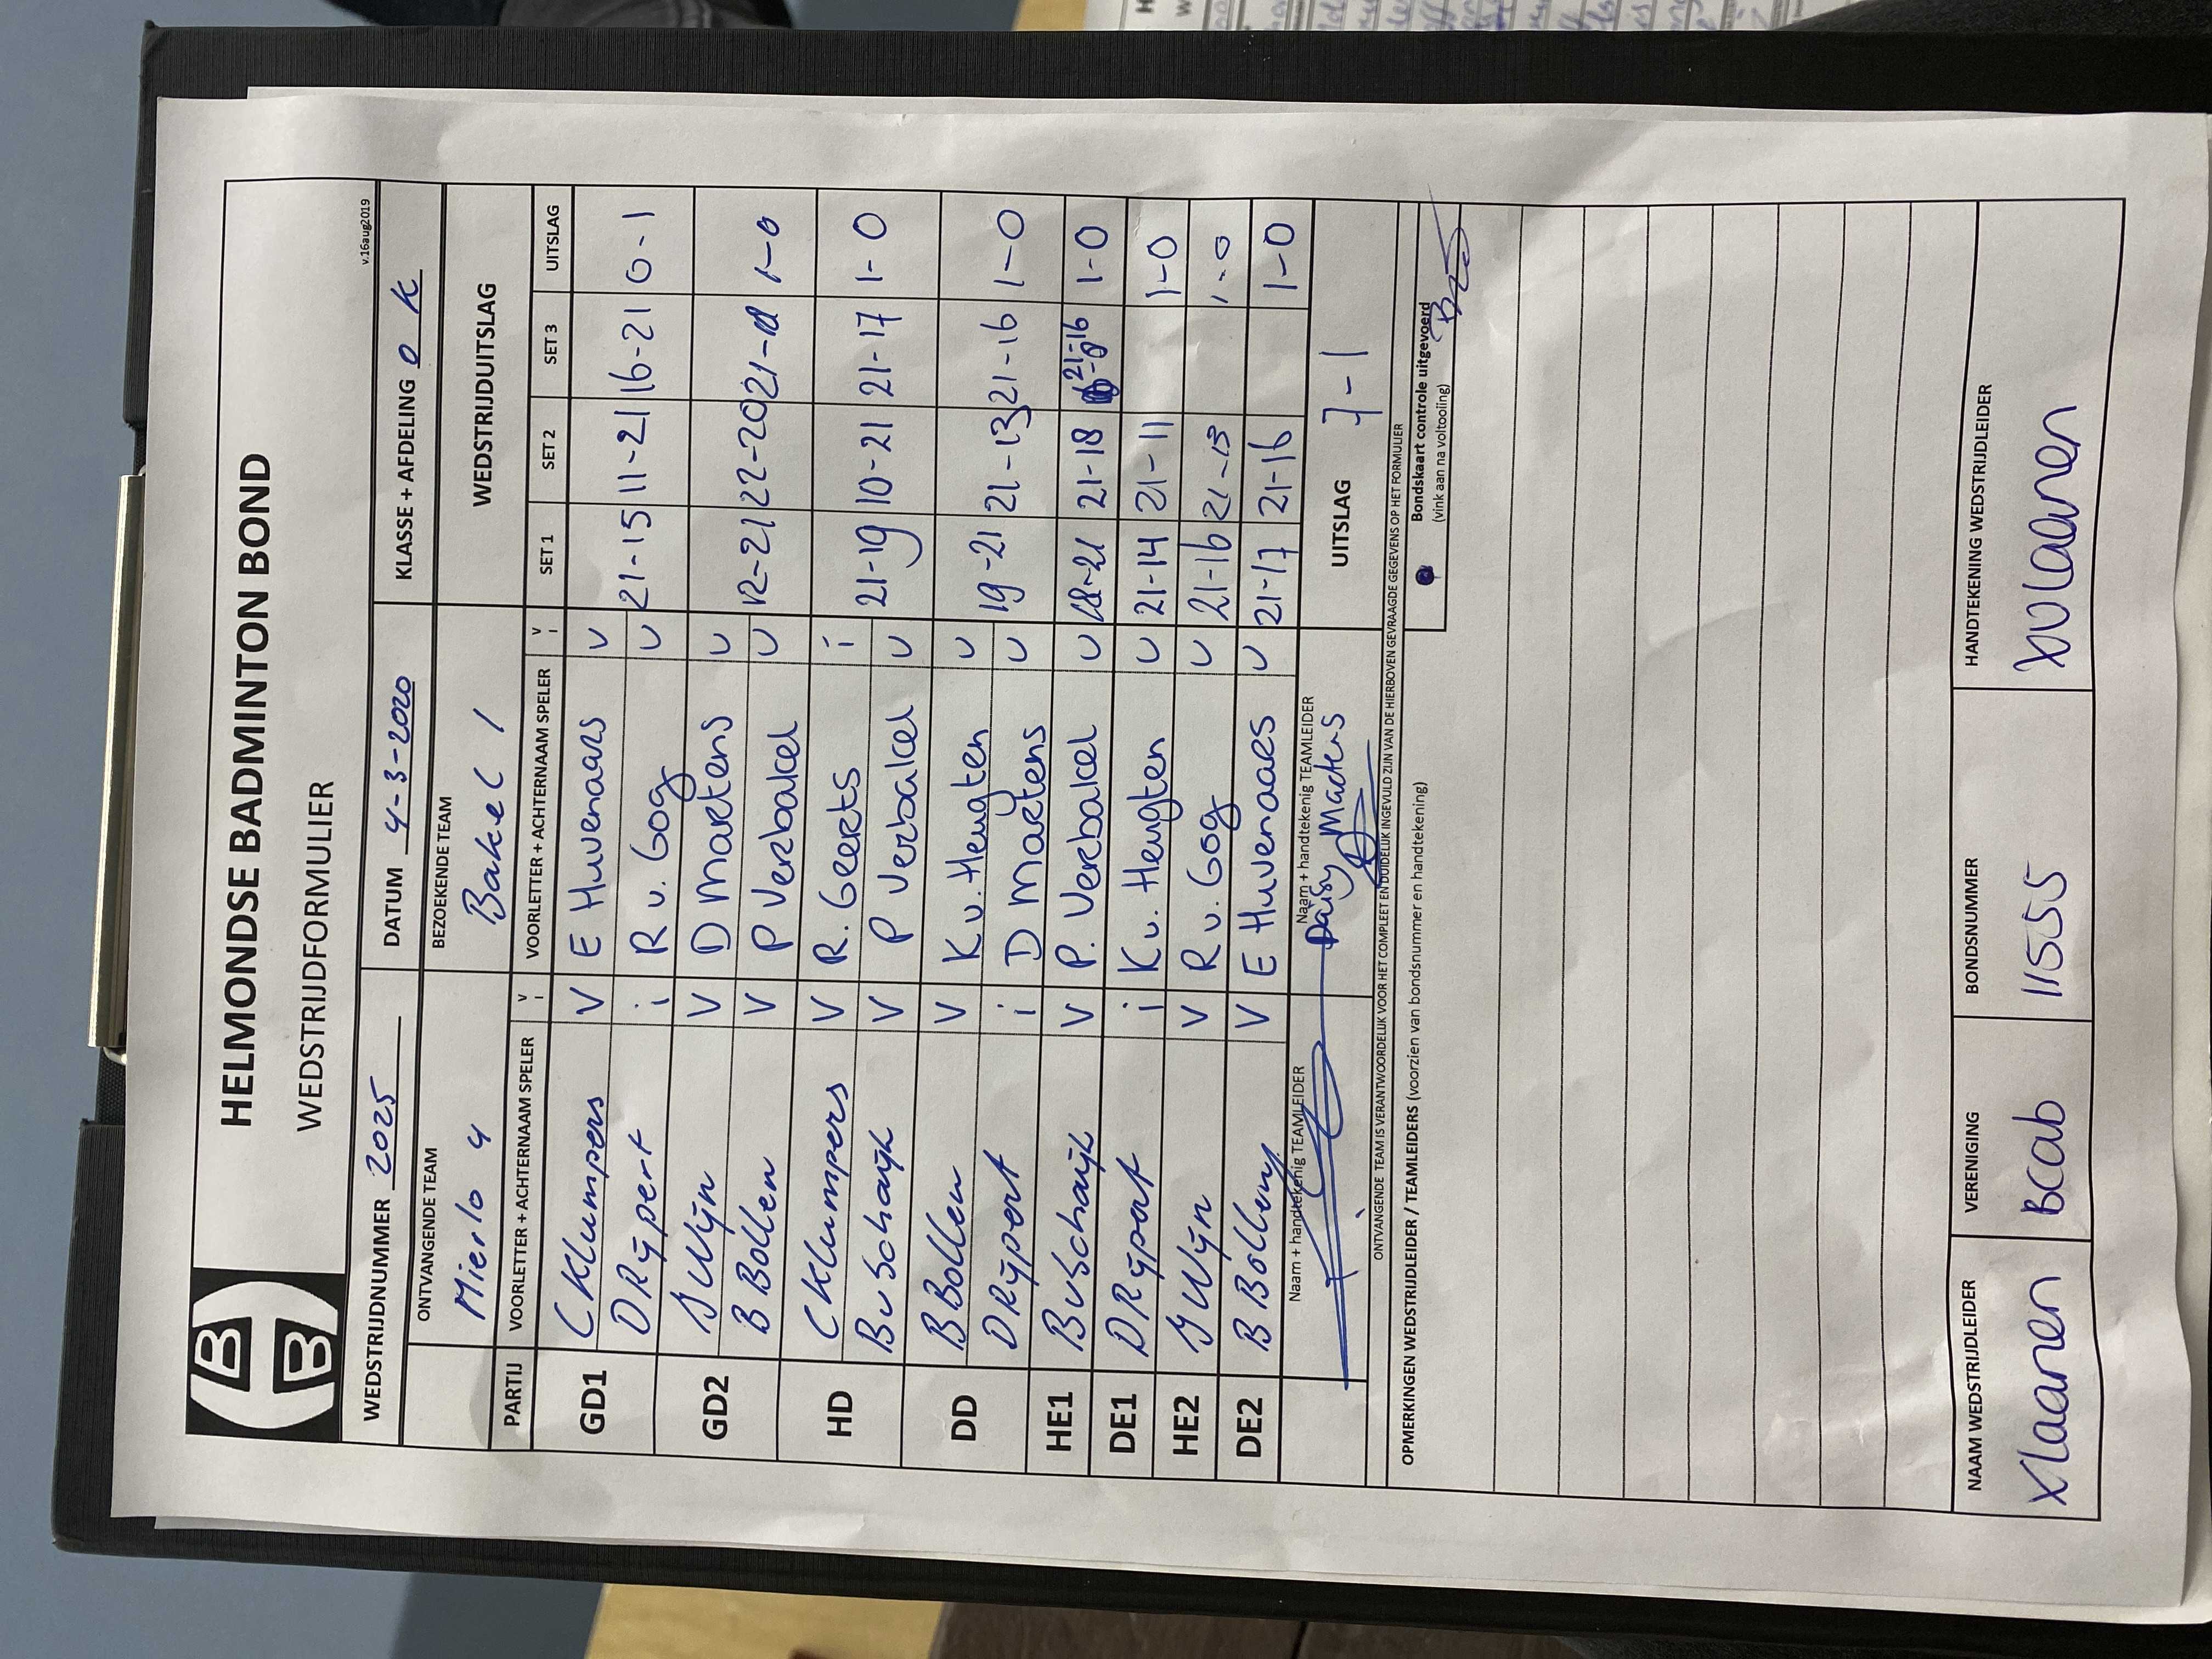 HELMONDSE BADMINTON BOND
WEDSTRIJDFORMULIER
v.16aug2019
WEDSTRIJDNUMMER 2025 DATUM 4-3-2020 KLASSE + AFDELING O K
ONTVANGENDE TEAM BEZOEKENDE TEAM WEDSTRIJDUITSLAG
Mierlo 4 Bakel 1
PARTIJ VOORLETTER + ACHTERNAAM SPELER V I VOORLETTER + ACHTERNAAM SPELER V I SET 1 SET 2 SET 3 UITSLAG
GD1 C Klumpers V E Huvenaars V
D Rÿpert i R v. Gog V 21-15 11-21 16-21 0-1
GD2 J Wÿn V D Martens V
B Bollen V P Verbakel V 12-21 22-20 21- 1-0
HD C Klumpers V R. Geerts i
B v Schaÿk V P Verbakel V 21-19 10-21 21-17 1-0
DD B Bollen V K v. Heugten V
D Rÿpert i D Martens V 19-21 21-13 21-16 1-0
HE1 B v Schaÿk V P. Verbakel V 18-21 21-18 21-16 1-0
DE1 D Rÿpert i K v. Heugten V 21-14 21-11 1-0
HE2 J Wÿn V R v. Gog V 21-16 21-13 1-0
DE2 B Bollen V E Huvenaars V 21-17 21-16 1-0
Naam + handtekenig TEAMLEIDER Naam + handtekenig TEAMLEIDER UITSLAG 7-1
Daisy Martens
ONTVANGENDE TEAM IS VERANTWOORDELIJK VOOR HET COMPLEET EN DUIDELIJK INGEVULD ZIJN VAN DE HIERBOVEN GEVRAAGDE GEGEVENS OP HET FORMULIER
OPMERKINGEN WEDSTRIJDLEIDER / TEAMLEIDERS (voorzien van bondsnummer en handtekening) Bondskaart controle uitgevoerd
(vink aan na voltooiing)
NAAM WEDSTRIJDLEIDER VERENIGING BONDSNUMMER HANDTEKENING WEDSTRIJDLEIDER
X Laanen BCab 11555 XVLaanen